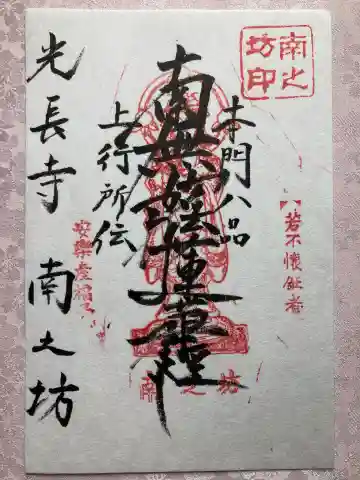 南之
坊印
本門八品
南無妙法蓮華経
上行所伝
若不懐
者
南之坊
光長寺 南之坊